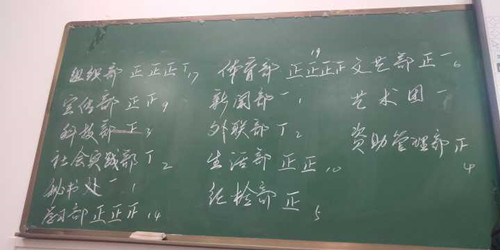 组织部 正正正丅 17
宣传部 正正 9
科技部 正 3
社会实践部 丅 2
秘书处 一 1
学习部 正正正 14
体育部 正正正正 19
新闻部 一 1
外联部 丅 2
生活部 正正 10
纪检部 正 5
文艺部 正一 6
艺术团 一
资助管理部 正 4